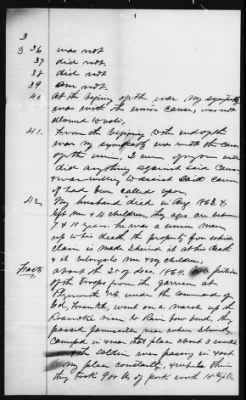 3
3 36 was not
37 did not
38 did not
39 am not
40 At the begining of the war my sympathy
was with the union cause, was not
allowed to vote,
41. From the begining to the end of the
war my sympathy was with the cause
of the union, I never
did anything against said cause
& was willing to aid said cause
if had been called upon
42. My husband died in Aug 1863. &
left me & 4 children, they ages are been
7 & 15 years. He was a union man
up to his death the property for which
claim is made I owned it at his death
& it belongs to me & my children,
Facts, about the 20 of Dec. 1864, a portion
of the troops from the garrison at
Plymouth N.C. under the command of
Col, Frankle, went on a march up the
Roanoke river to Rain bow bend, they
passed Jamesville near where I lived,
Camped in & near that place about 3 weeks
the soldiers was passing in & out
my place constantly, & while there
they took 900 lbs of pork worth